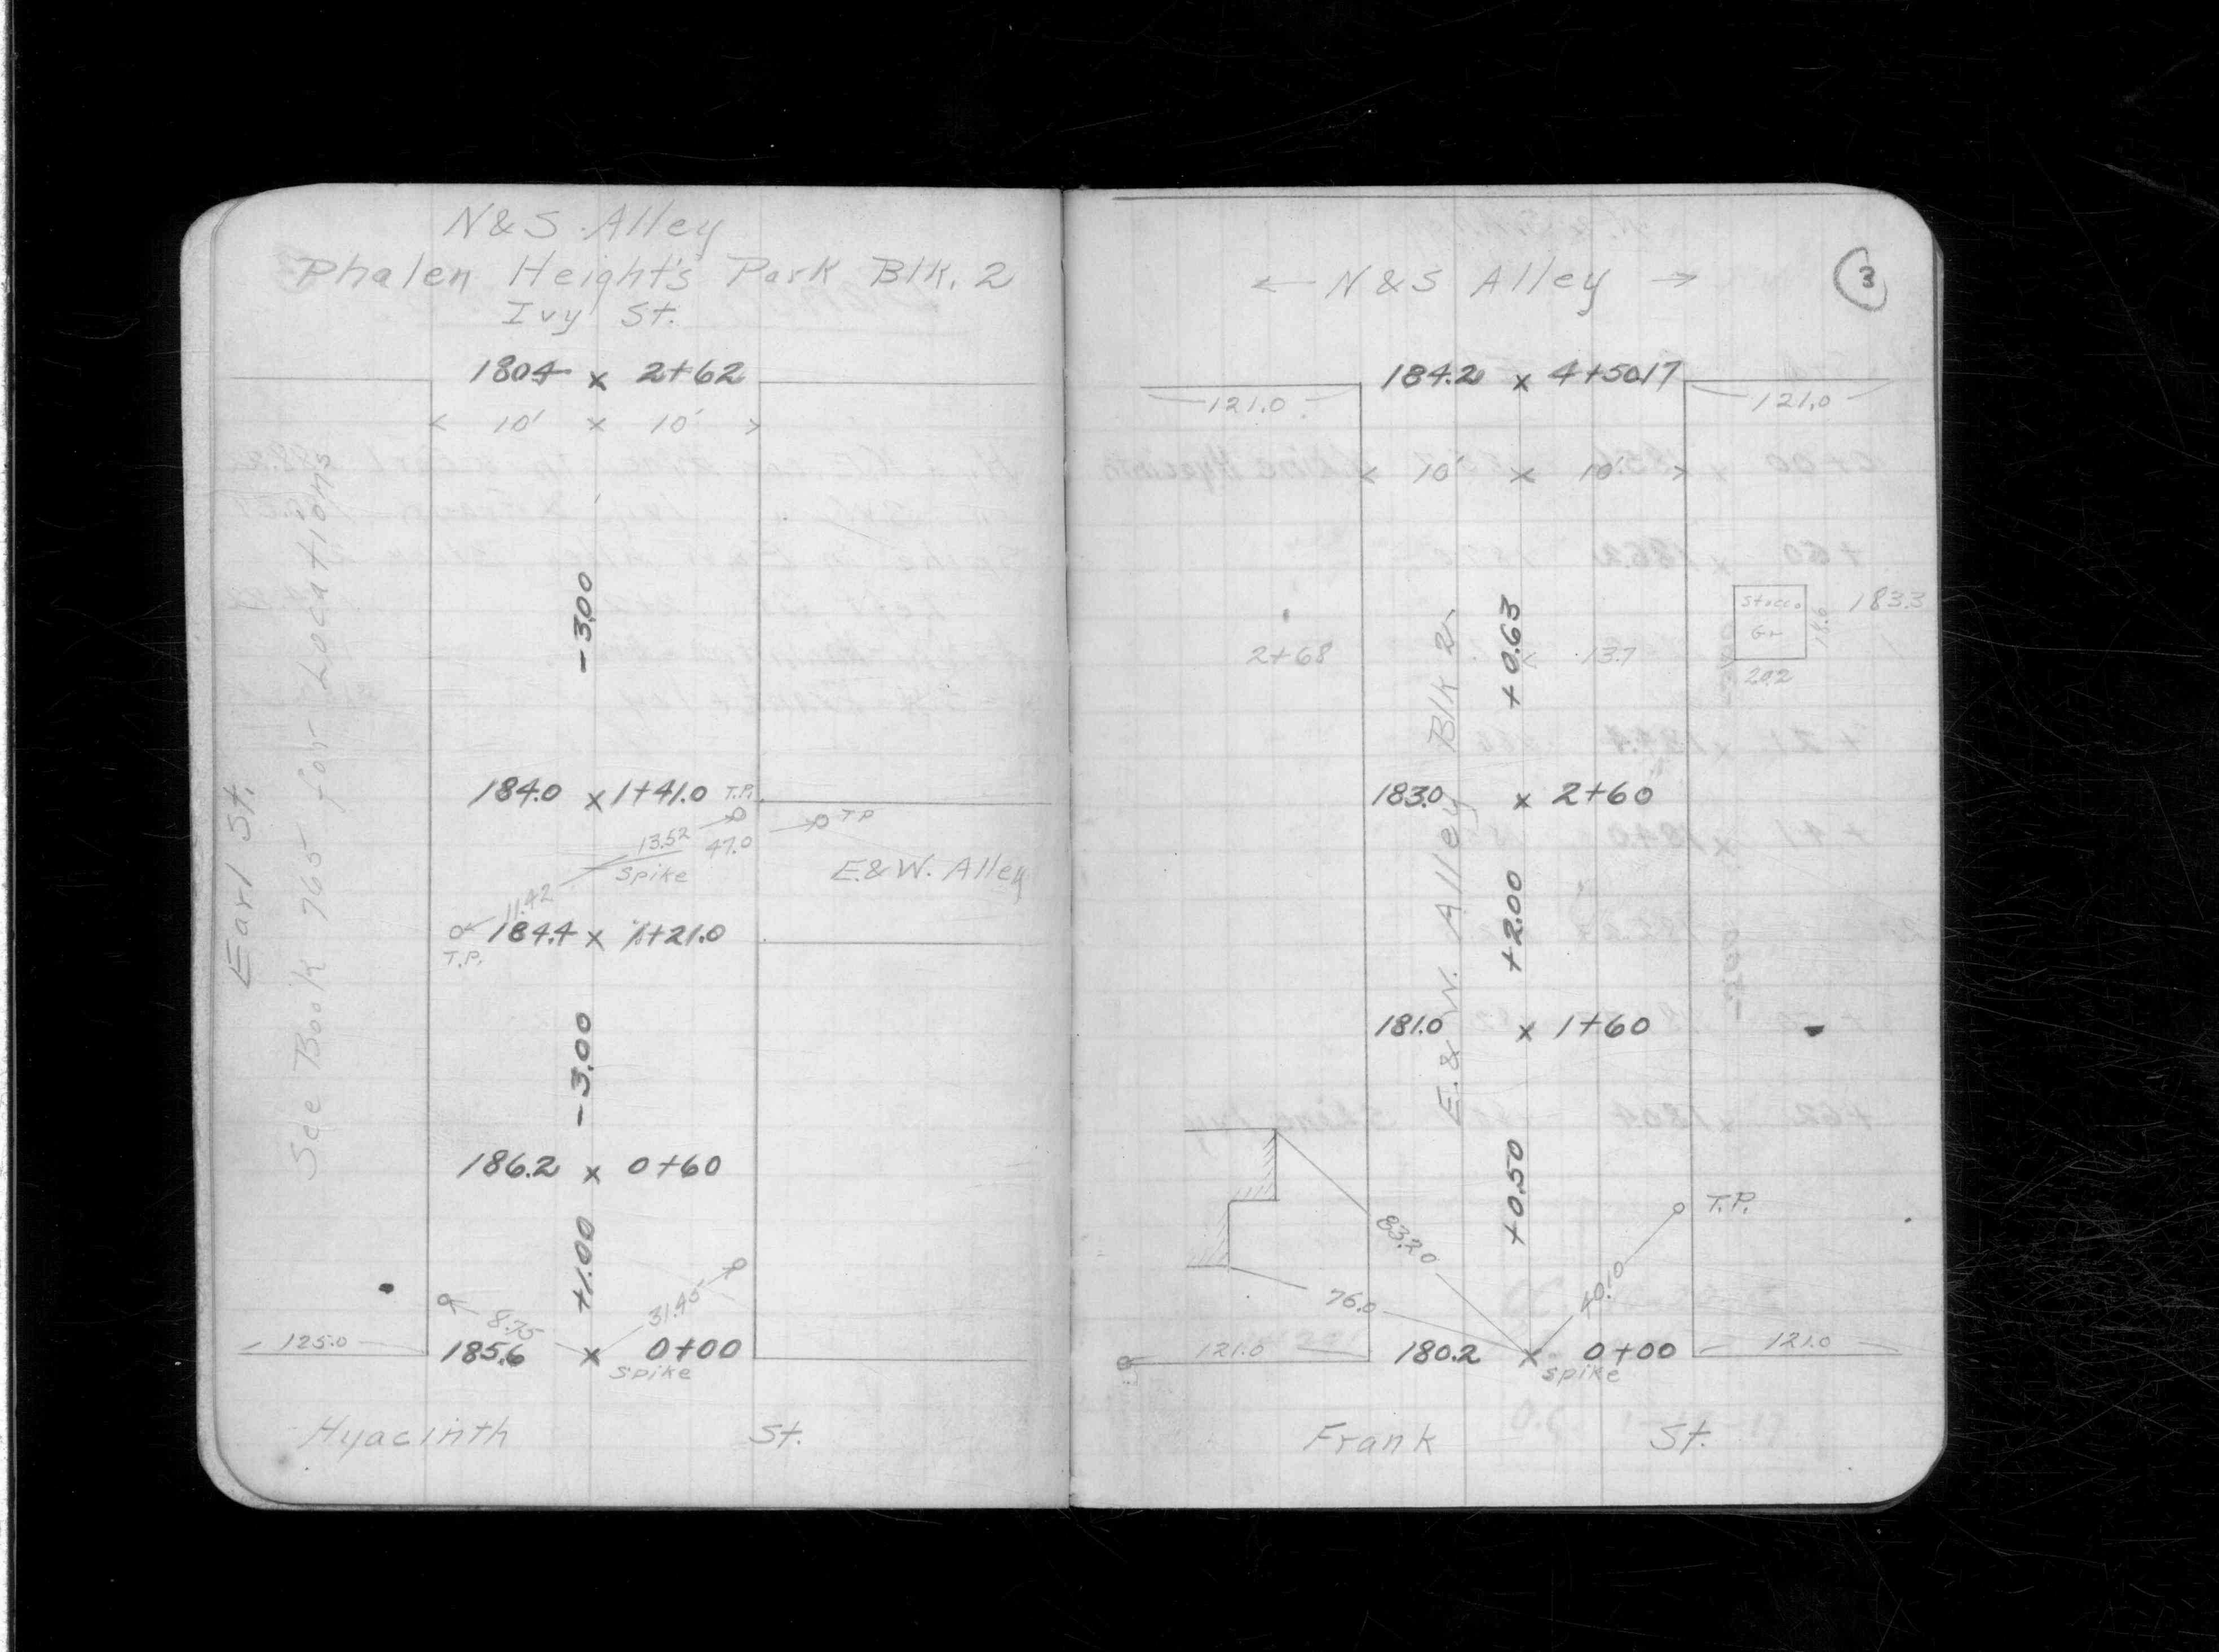 N&S. Alley
Phalen Height's Park Blk. 2
Ivy St.
180.4 x 2+62
< 10' x 10' >
-3.00
See Book 765 for Locations
Earl St.
184.0 x 1+41.0 T.P.
13.52 47.0 T.P
Spike
E.&W. Alley
11.42
184.4 x 1+21.0
T.P.
-3.00
186.2 x 0+60
+1.00
8.75 31.45
125.0
185.6 x 0+00
Spike
Hyacinth St.
3
← N&S Alley →
184.2 x 4+50.17
121.0 121.0
< 10' x 10' >
+0.63
Stucco
Gr
18.6
183.3
2+68
13.7
20.2
E.&W. Alley Blk 2
183.0 x 2+60
+2.00
181.0 x 1+60
+0.50
T.P.
83.20
40.10
76.0
121.0 180.2 x 0+00 121.0
Spike
Frank St.